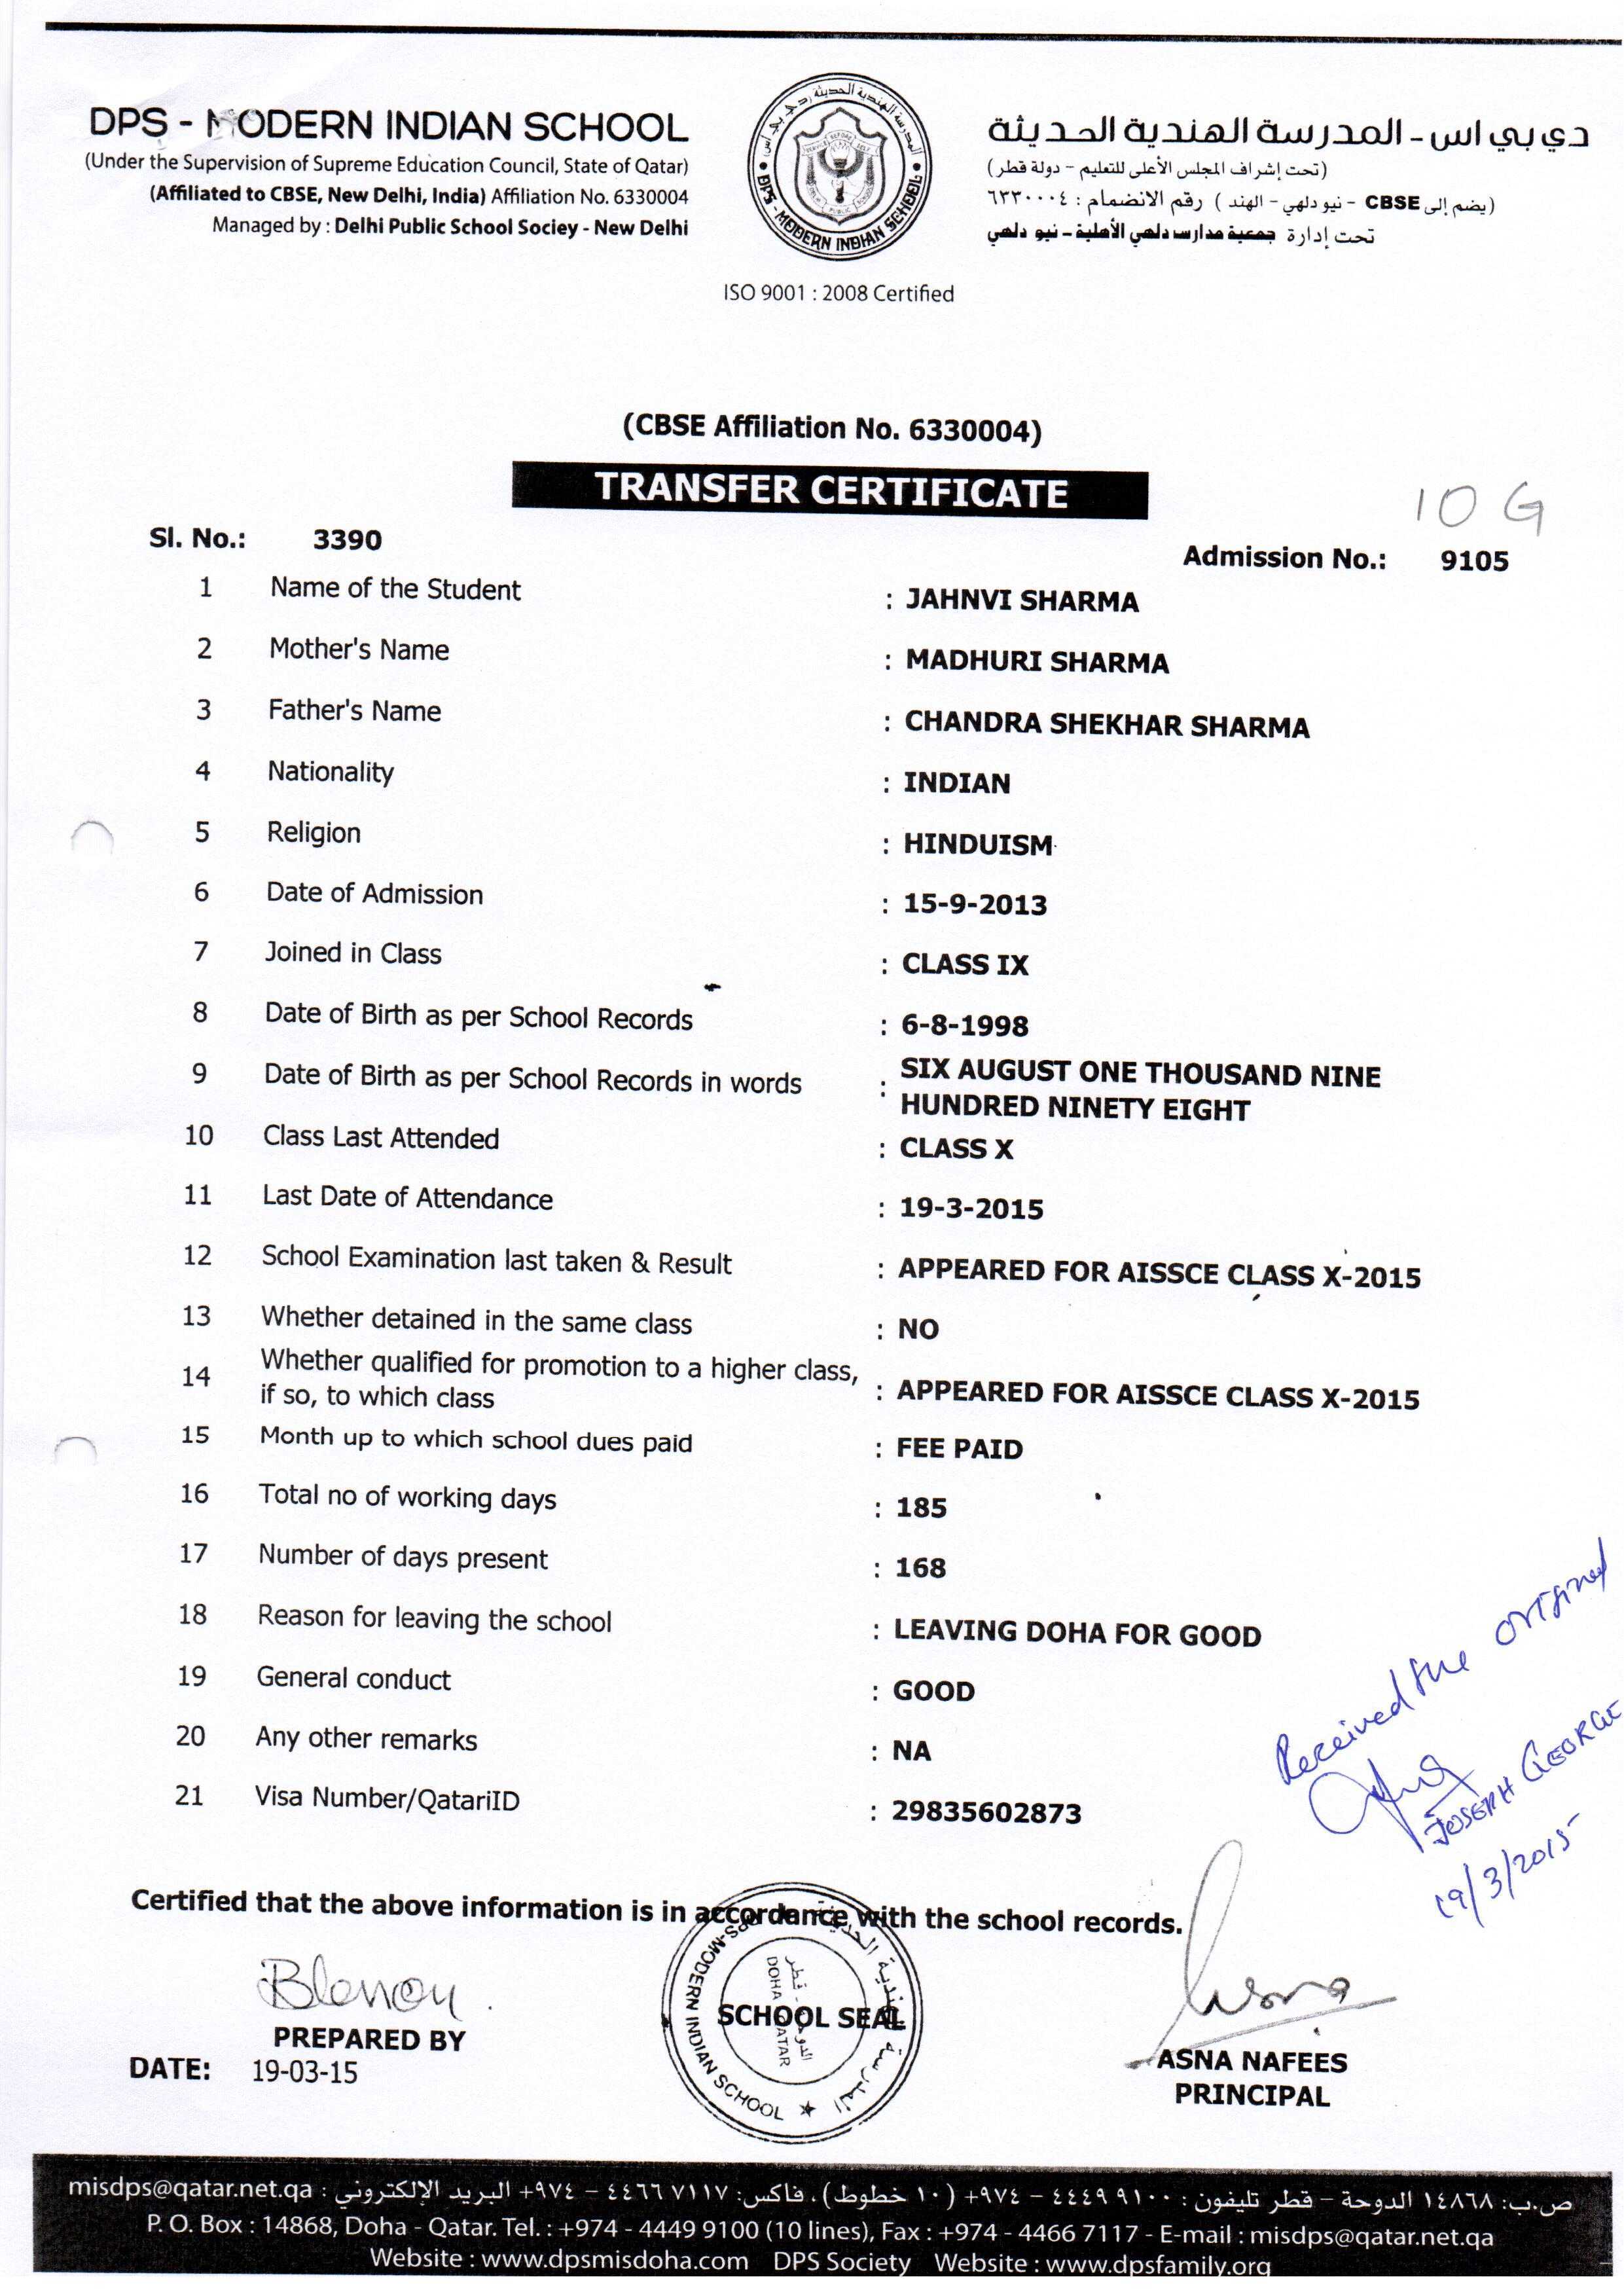 DPS - MODERN INDIAN SCHOOL
(Under the Supervision of Supreme Education Council, State of Qatar)
(Affiliated to CBSE, New Delhi, India) Affiliation No. 6330004
Managed by : Delhi Public School Sociey - New Delhi
المدرسة الهندية الحديثة دي بي اس
DPS - MODERN INDIAN SCHOOL
SERVICE BEFORE SELF
ISO 9001 : 2008 Certified
دي بي اس - المدرسة الهندية الحديثة
(تحت إشراف المجلس الأعلى للتعليم - دولة قطر)
(يضم إلى CBSE - نيو دلهي - الهند ) رقم الانضمام : ٦٣٣٠٠٠٤
تحت إدارة جمعية مدارس دلهي الأهلية - نيو دلهي
(CBSE Affiliation No. 6330004)
TRANSFER CERTIFICATE
10 G
Sl. No.: 3390 Admission No.: 9105
1 Name of the Student : JAHNVI SHARMA
2 Mother's Name : MADHURI SHARMA
3 Father's Name : CHANDRA SHEKHAR SHARMA
4 Nationality : INDIAN
5 Religion : HINDUISM
6 Date of Admission : 15-9-2013
7 Joined in Class : CLASS IX
8 Date of Birth as per School Records : 6-8-1998
9 Date of Birth as per School Records in words : SIX AUGUST ONE THOUSAND NINE
HUNDRED NINETY EIGHT
10 Class Last Attended : CLASS X
11 Last Date of Attendance : 19-3-2015
12 School Examination last taken & Result : APPEARED FOR AISSCE CLASS X-2015
13 Whether detained in the same class : NO
14 Whether qualified for promotion to a higher class,
if so, to which class : APPEARED FOR AISSCE CLASS X-2015
15 Month up to which school dues paid : FEE PAID
16 Total no of working days : 185
17 Number of days present : 168
18 Reason for leaving the school : LEAVING DOHA FOR GOOD
19 General conduct : GOOD
20 Any other remarks : NA
21 Visa Number/QatariID : 29835602873
Received the original
JOSEPH GEORGE
19/3/2015
Certified that the above information is in accordance with the school records.
DPS-MODERN INDIAN SCHOOL
المدرسة الهندية الحديثة
الدوحة - قطر
DOHA QATAR
SCHOOL SEAL
PREPARED BY
DATE: 19-03-15
ASNA NAFEES
PRINCIPAL
ص.ب: ١٤٨٦٨ الدوحة - قطر تليفون : ٩١٠٠ ٤٤٤٩ - ٩٧٤+ (١٠ خطوط)، فاكس: ٧١١٧ ٤٤٦٦ - ٩٧٤+ البريد الإلكتروني : misdps@qatar.net.qa
P. O. Box : 14868, Doha - Qatar. Tel. : +974 - 4449 9100 (10 lines), Fax : +974 - 4466 7117 - E-mail : misdps@qatar.net.qa
Website : www.dpsmisdoha.com DPS Society Website : www.dpsfamily.org